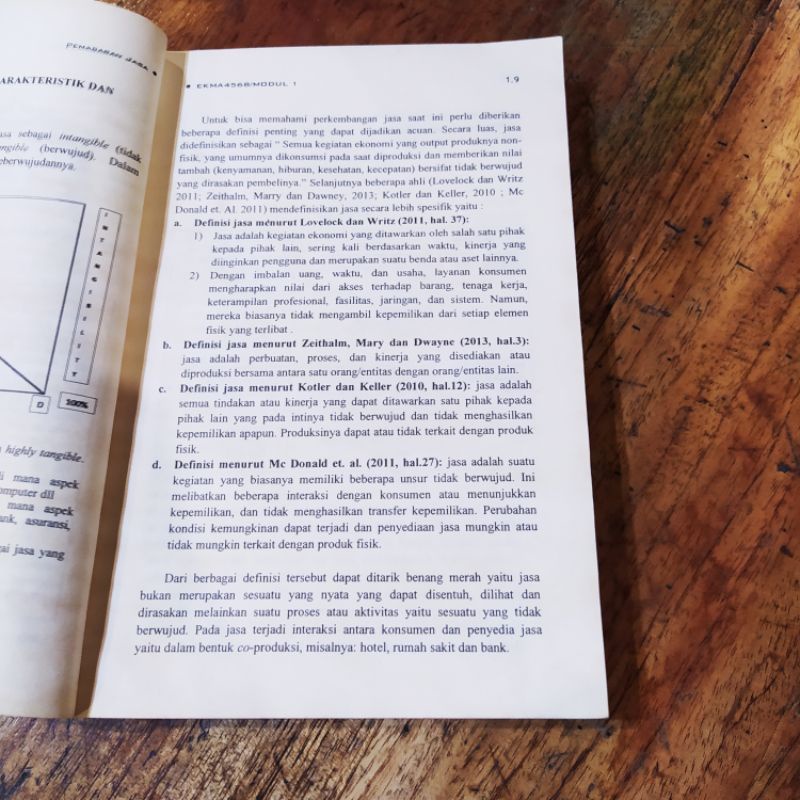 PEMASARAN JASA
ARAKTERISTIK DAN
sa sebagai intangible (tidak
ngible (berwujud). Dalam
eberwujudannya.
INTANGIBILITY
D 100%
highly tangible.
di mana aspek
omputer dll
mana aspek
ank, asuransi,
ai jasa yang
EKMA4568/MODUL 1 1.9
Untuk bisa memahami perkembangan jasa saat ini perlu diberikan
beberapa definisi penting yang dapat dijadikan acuan. Secara luas, jasa
didefinisikan sebagai " Semua kegiatan ekonomi yang output produknya non-
fisik, yang umumnya dikonsumsi pada saat diproduksi dan memberikan nilai
tambah (kenyamanan, hiburan, kesehatan, kecepatan) bersifat tidak berwujud
yang dirasakan pembelinya." Selanjutnya beberapa ahli (Lovelock dan Writz
2011; Zeithalm, Marry dan Dawney, 2013; Kotler dan Keller, 2010 ; Mc
Donald et. Al. 2011) mendefinisikan jasa secara lebih spesifik yaitu :
a. Definisi jasa menurut Lovelock dan Writz (2011, hal. 37):
1) Jasa adalah kegiatan ekonomi yang ditawarkan oleh salah satu pihak
kepada pihak lain, sering kali berdasarkan waktu, kinerja yang
diinginkan pengguna dan merupakan suatu benda atau aset lainnya.
2) Dengan imbalan uang, waktu, dan usaha, layanan konsumen
mengharapkan nilai dari akses terhadap barang, tenaga kerja,
keterampilan profesional, fasilitas, jaringan, dan sistem. Namun,
mereka biasanya tidak mengambil kepemilikan dari setiap elemen
fisik yang terlibat .
b. Definisi jasa menurut Zeithalm, Mary dan Dwayne (2013, hal.3):
jasa adalah perbuatan, proses, dan kinerja yang disediakan atau
diproduksi bersama antara satu orang/entitas dengan orang/entitas lain.
c. Definisi jasa menurut Kotler dan Keller (2010, hal.12): jasa adalah
semua tindakan atau kinerja yang dapat ditawarkan satu pihak kepada
pihak lain yang pada intinya tidak berwujud dan tidak menghasilkan
kepemilikan apapun. Produksinya dapat atau tidak terkait dengan produk
fisik.
d. Definisi menurut Mc Donald et. al. (2011, hal.27): jasa adalah suatu
kegiatan yang biasanya memiliki beberapa unsur tidak berwujud. Ini
melibatkan beberapa interaksi dengan konsumen atau menunjukkan
kepemilikan, dan tidak menghasilkan transfer kepemilikan. Perubahan
kondisi kemungkinan dapat terjadi dan penyediaan jasa mungkin atau
tidak mungkin terkait dengan produk fisik.
Dari berbagai definisi tersebut dapat ditarik benang merah yaitu jasa
bukan merupakan sesuatu yang nyata yang dapat disentuh, dilihat dan
dirasakan melainkan suatu proses atau aktivitas yaitu sesuatu yang tidak
berwujud. Pada jasa terjadi interaksi antara konsumen dan penyedia jasa
yaitu dalam bentuk co-produksi, misalnya: hotel, rumah sakit dan bank.